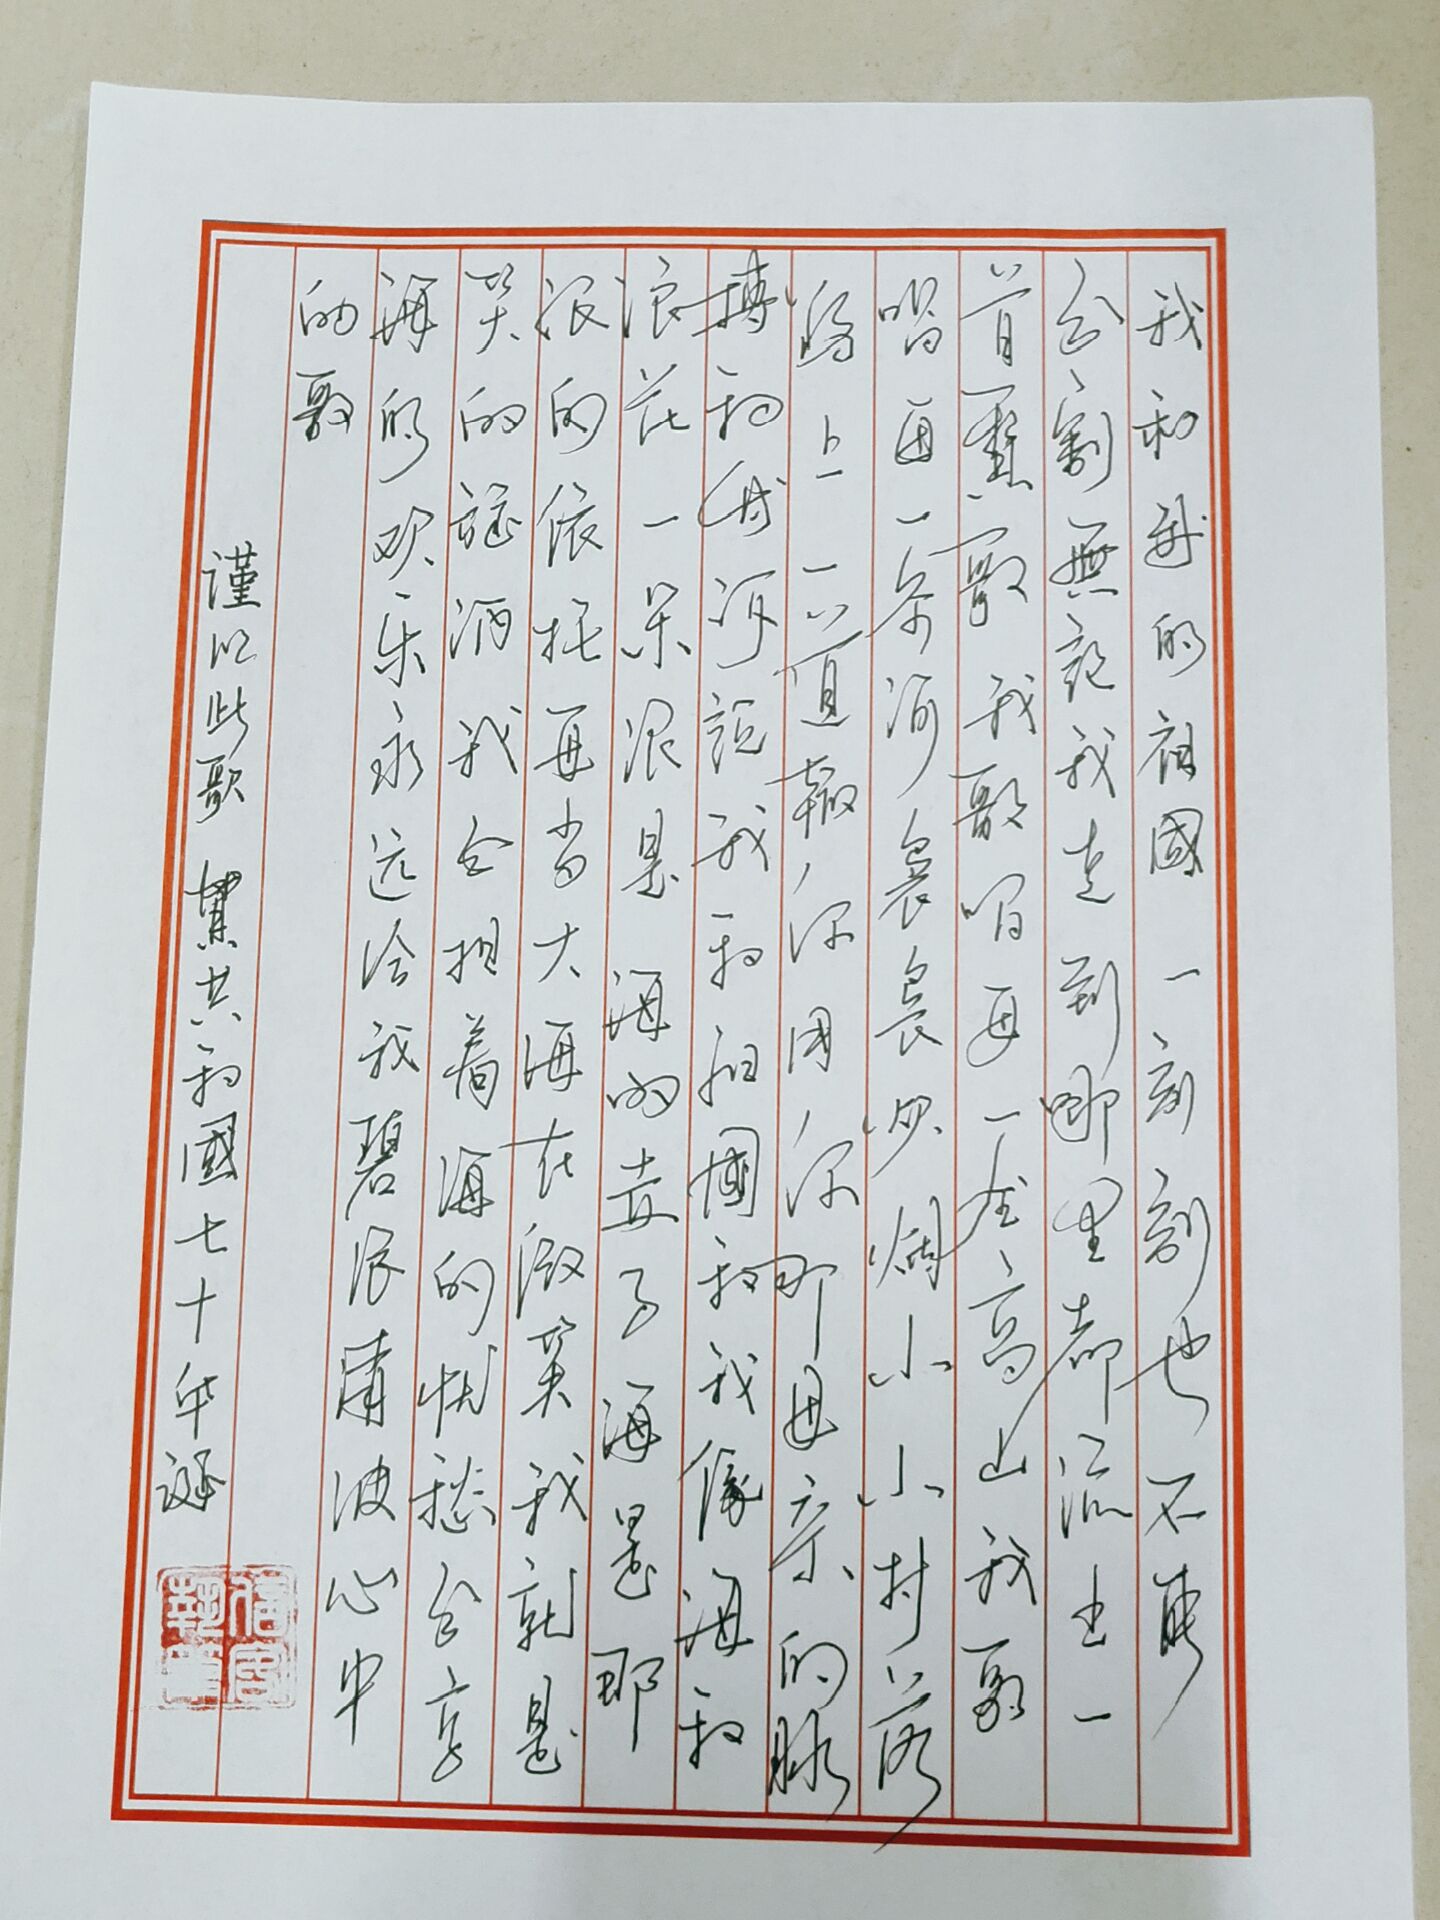 我和我的祖國一刻刻也不能
分割無論我走到哪里都流出一
首赞歌我歌唱每一座高山我歌
唱每一条河裊裊炊烟小小村落
路上一道辙你用你那母亲的脉
搏和我诉説我和祖國和我像海和
浪花一朵浪是海的赤子海是那
浪的依托每当大海在微笑我就是
笑的旋涡我分担着海的忧愁分享
海的欢乐永远给我碧浪清波心中
的歌
謹以此歌 賀共和國七十年诞